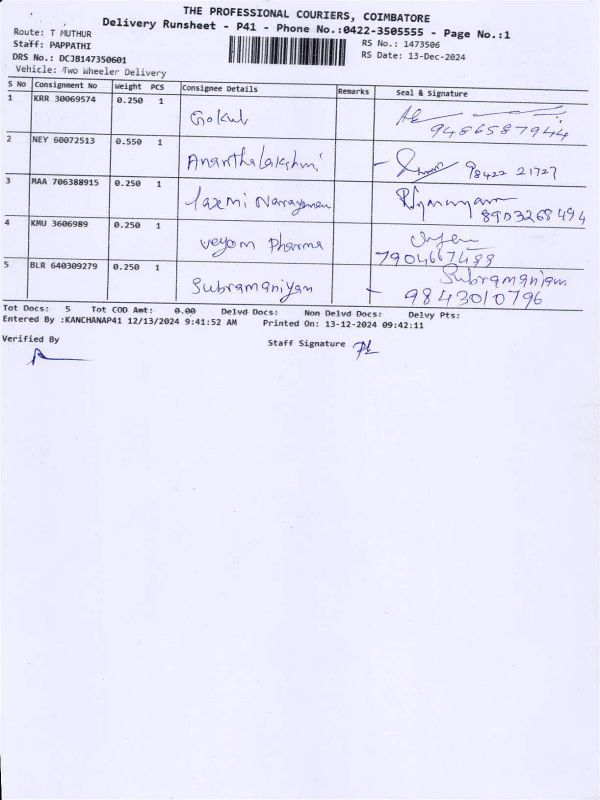 THE PROFESSIONAL COURIERS, COIMBATORE
Delivery Runsheet - P41 - Phone No.:0422-3505555 - Page No.:1
Route: T MUTHUR
RS No.: 1473506
Staff: PAPPATHI
RS Date: 13-Dec-2024
DRS No.: DCJB147350601
Vehicle: Two Wheeler Delivery
S No Consignment No Weight PCS Consignee Details Remarks Seal & Signature
1 KRR 30069574 0.250 1
Gokul 9486587944
2 NEY 60072513 0.550 1
Ananthalakshmi 98422 21727
3 MAA 706388915 0.250 1
laxmi Narrayanan
8903268494
4 KMU 3606989 0.250 1
veyom Pharma
7904667499
5 BLR 640309279 0.250 1 Subramaniam
Subramaniyan 9843010796
Tot Docs: 5 Tot COD Amt: 0.00 Delvd Docs: Non Delvd Docs: Delvy Pts:
Entered By :KANCHANAP41 12/13/2024 9:41:52 AM Printed On: 13-12-2024 09:42:11
Verified By
Staff Signature